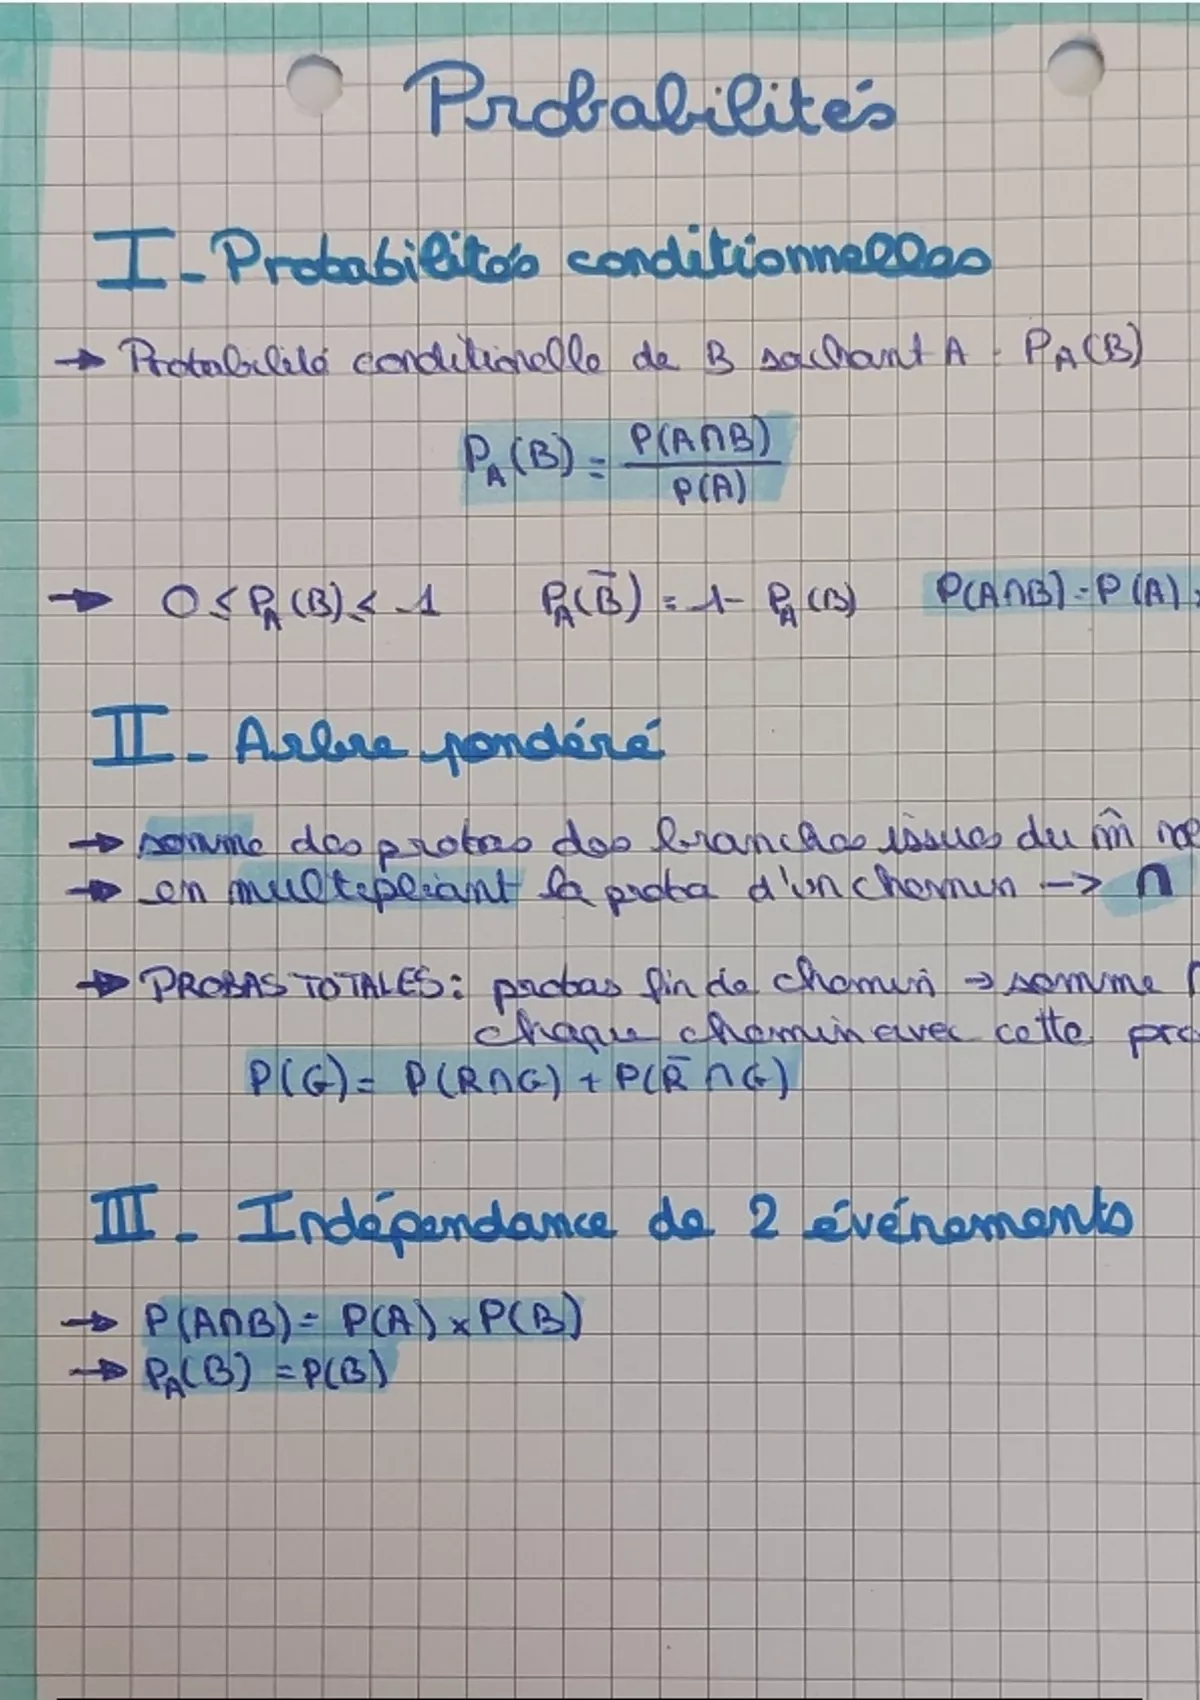 Probabilités
I - Probabilités conditionnelles
→ Probabilité conditionelle de B sachant A : P_A(B)
P_A(B) = P(A∩B) / P(A)
→ 0 ≤ P_A(B) ≤ 1 P_A(B̅) = 1 - P_A(B) P(A∩B) = P(A) ×
II - Arbre pondéré
→ somme des probas des branches issues du m̂
→ en multipliant la proba d'un chemin → ∩
→ PROBAS TOTALES : probas fin de chemin → somme
chaque chemin avec cette
P(G) = P(R∩G) + P(R̅∩G)
III - Indépendance de 2 événements
→ P(A∩B) = P(A) × P(B)
→ P_A(B) = P(B)